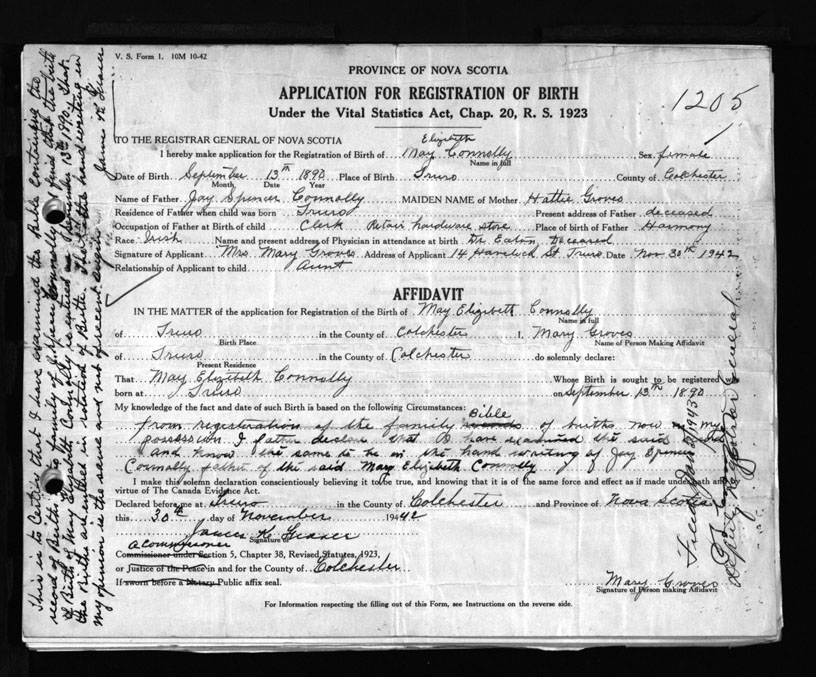 V. S. Form 1. 10M 10-42
PROVINCE OF NOVA SCOTIA
APPLICATION FOR REGISTRATION OF BIRTH
Under the Vital Statistics Act, Chap. 20, R. S. 1923
1205
TO THE REGISTRAR GENERAL OF NOVA SCOTIA
Elizabeth
I hereby make application for the Registration of Birth of May Connolly Sex female
Name in full
Date of Birth September 13th 1890 Place of Birth Truro County of Colchester
Month Date Year
Name of Father Jay Spencer Connolly MAIDEN NAME of Mother Hattie Groves
Residence of Father when child was born Truro Present address of Father deceased
Occupation of Father at Birth of child Clerk Retail hardware store Place of birth of Father Harmony
Race Irish Name and present address of Physician in attendance at birth Dr. Eaton, Deceased
Signature of Applicant Mrs. Mary Groves Address of Applicant 14 Havelock St. Truro Date Nov 30th 1942
Relationship of Applicant to child Aunt
AFFIDAVIT
IN THE MATTER of the application for Registration of the Birth of May Elizabeth Connolly
Name in full
of Truro in the County of Colchester I, Mary Groves
Birth Place Name of Person Making Affidavit
of Truro in the County of Colchester do solemnly declare:
Present Residence
That May Elizabeth Connolly Whose Birth is sought to be registered was
born at Truro on September 13th 1890
My knowledge of the fact and date of such Birth is based on the following Circumstances:
Bible
From registeration of the family records of births now in my
possession. I father declare that I have examined the said
and know the same to be in the hand writing of Jay Spencer
Connolly father of the said Mary Elizabeth Connolly
I make this solemn declaration conscientiously believing it to be true, and knowing that it is of the same force and effect as if made under oath and by
virtue of The Canada Evidence Act.
Declared before me at Truro in the County of Colchester and Province of Nova Scotia
this 30th day of November 1942
James K. Fraser
Signature of
A commissioner
Commissioner under Section 5, Chapter 38, Revised Statutes, 1923,
or Justice of the Peace in and for the County of Colchester
If sworn before a Notary Public affix seal.
Mary Groves
Signature of Person making Affidavit
For Information respecting the filling out of this Form, see Instructions on the reverse side.
This is to Certify that I have examined the Bible containing the
record of Births in family of Spencer Connolly and find that the birth
of Mary Elizabeth Connolly is entered as September 13th 1890. That
the Births are entered in rotation of Birth. That the hand writing in
my opinion is the same and not of recent origin
Filed Jan 5/1943
Deputy Registrar General